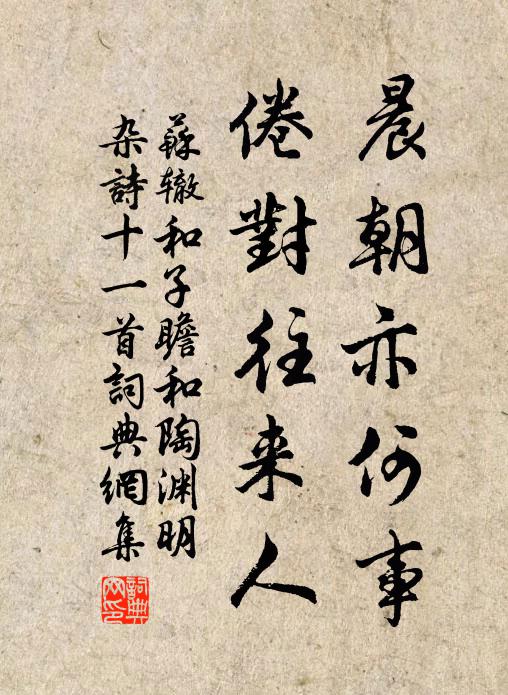 晨朝亦何事
倦對往来人
蘇辙和子瞻和陶渊明
杂詩十一首詞典網集
詞典网印